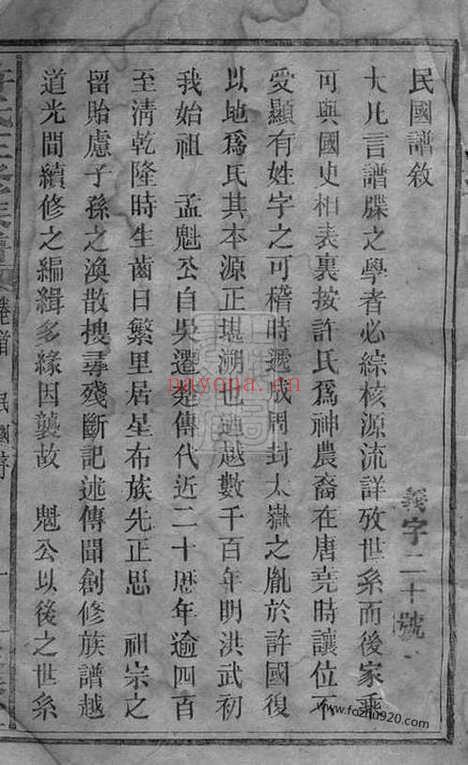 民國譜敘
大凡言譜牒之學者必綜核源流詳攷世系而後家乘
可與國史相表裏按許氏爲神農裔在唐堯時讓位不
受顯有姓字之可稽時遞成周封太嶽之胤於許國復
以地爲氏其本源正堪溯也迤越數千百年明洪武初
我始祖 孟魁公自吳遷楚傳代近二十歷年逾四百
至淸乾隆時生齒日繁里居星布族先正思 祖宗之
留貽慮子孫之渙散搜尋殘斷記述傳聞創修族譜越
道光間續修之編緝多緣因襲故 魁公以後之世系
義字二十號
卷首 民國譜
nayona.cn
www.fozhu920.com